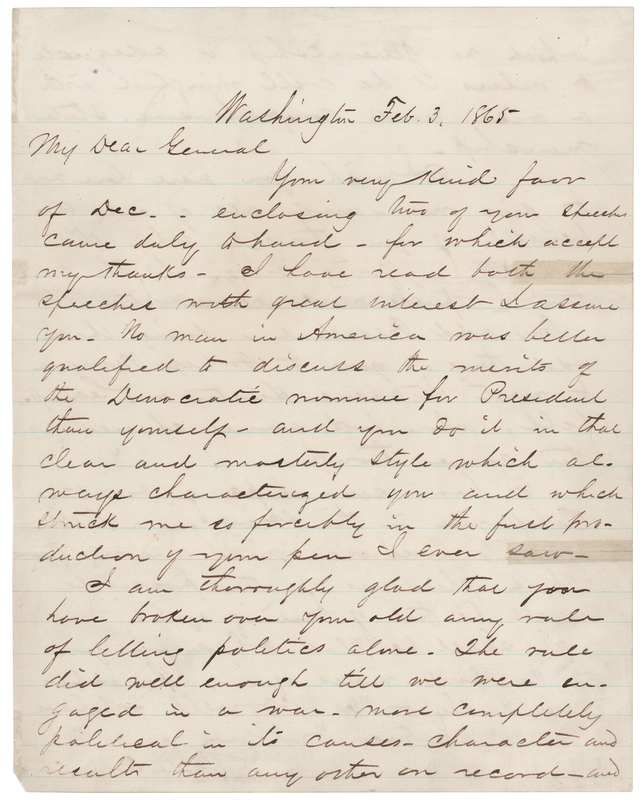 Washington Feb. 3. 1865
My Dear General
Your very kind favor
of Dec. - enclosing two of your speeches
came duly to hand - for which accept
my thanks - I have read both the
speeches with great interest I assure
you - No man in America was better
qualified to discuss the merits of
the Democratic nominee for President
than yourself - and you do it in that
clear and masterly style which al-
ways characterized you and which
struck me so forcibly in the first pro-
duction of your pen I ever saw -
I am thoroughly glad that you
have broken over your old army rule
of letting politics alone - The rule
did well enough till we were en-
gaged in a war - more completely
political in its causes - character and
results than any other on record - and